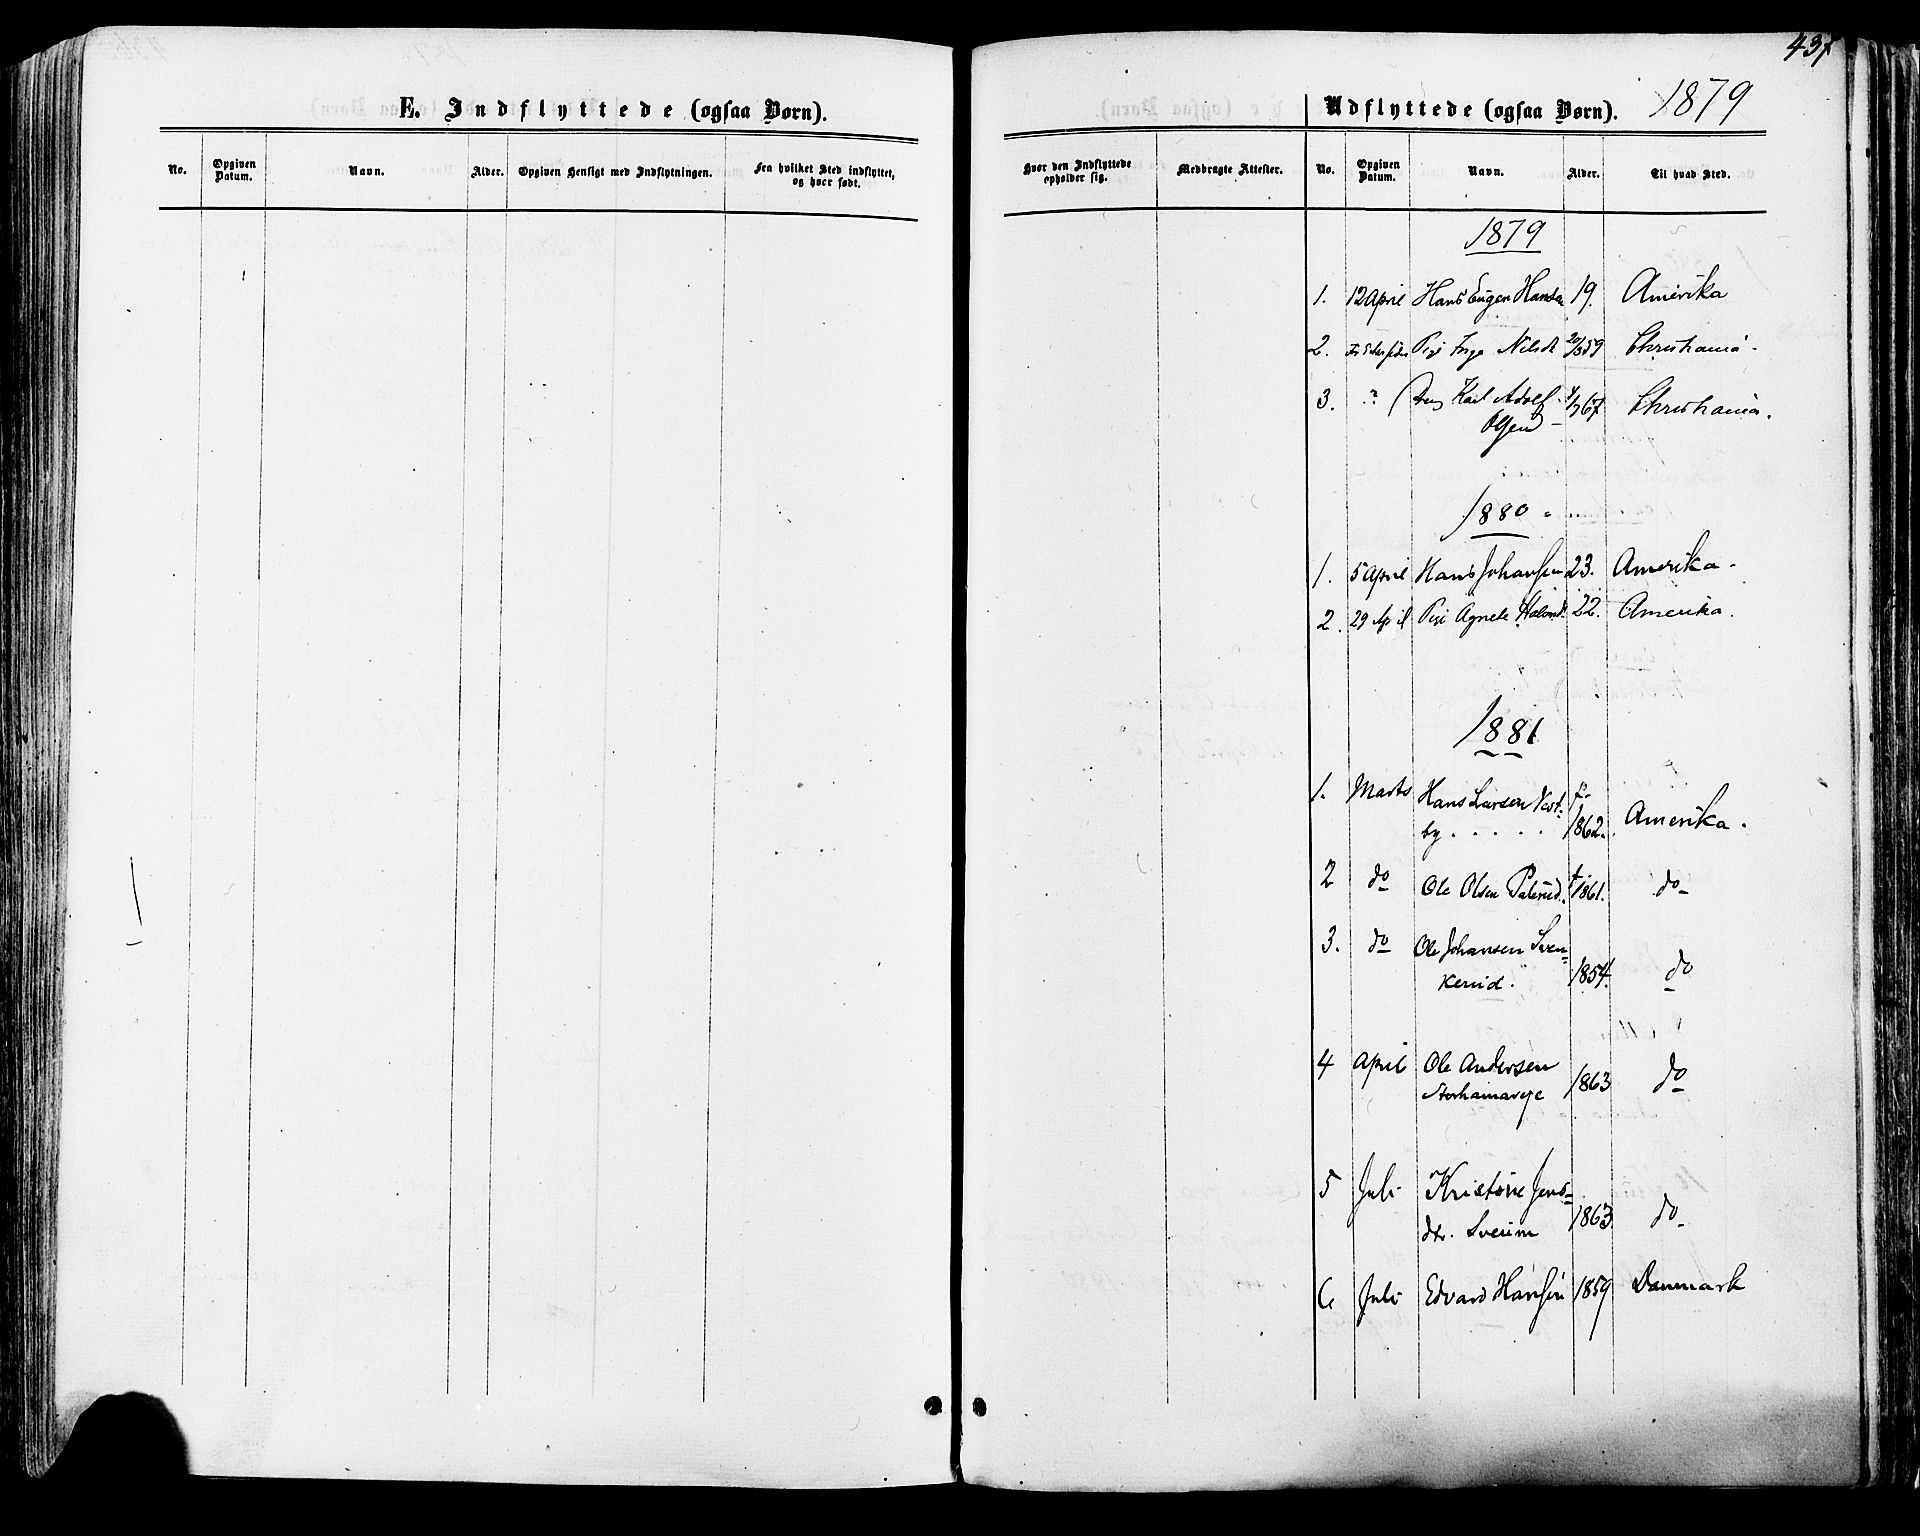 437
E. Indflyttede (ogsaa Børn).
No.
Opgiven Datum.
Navn.
Alder.
Opgiven Hensigt med Indflytningen.
Fra hvilket Sted indflyttet, og hvor født.
Udflyttede (ogsaa Børn). 1879
Hvor den Indflyttede opholder sig.
Medbragte Attester.
No.
Opgiven Datum.
Navn.
Alder.
Til hvad Sted.
1879
1. 12 April Hans Eugen Hansen 19. Amerika
2. Pige Inga Nilsdt 59 Christiania.
3. " Dreng Karl Adolf 4/7 67. Christiania.
Olsen
1880
1. 5 April Hans Johansen 23. Amerika.
2. 29 April Pige Agnete 22. Amerika.
1881
1. Marts Hans Larsen Vest- f.
by . . . . . 1862. Amerika.
2 do Ole Olsen Palerud. f. 1861. do
3. do Ole Johansen Sven-
kerud. 1854. do
4 April Ole Andersen
Storhamareje 1863 do
5 Juli Kristine Jens-
dtr. Sveum 1863 do
6 Juli Edvard Hansen 1859 Danmark